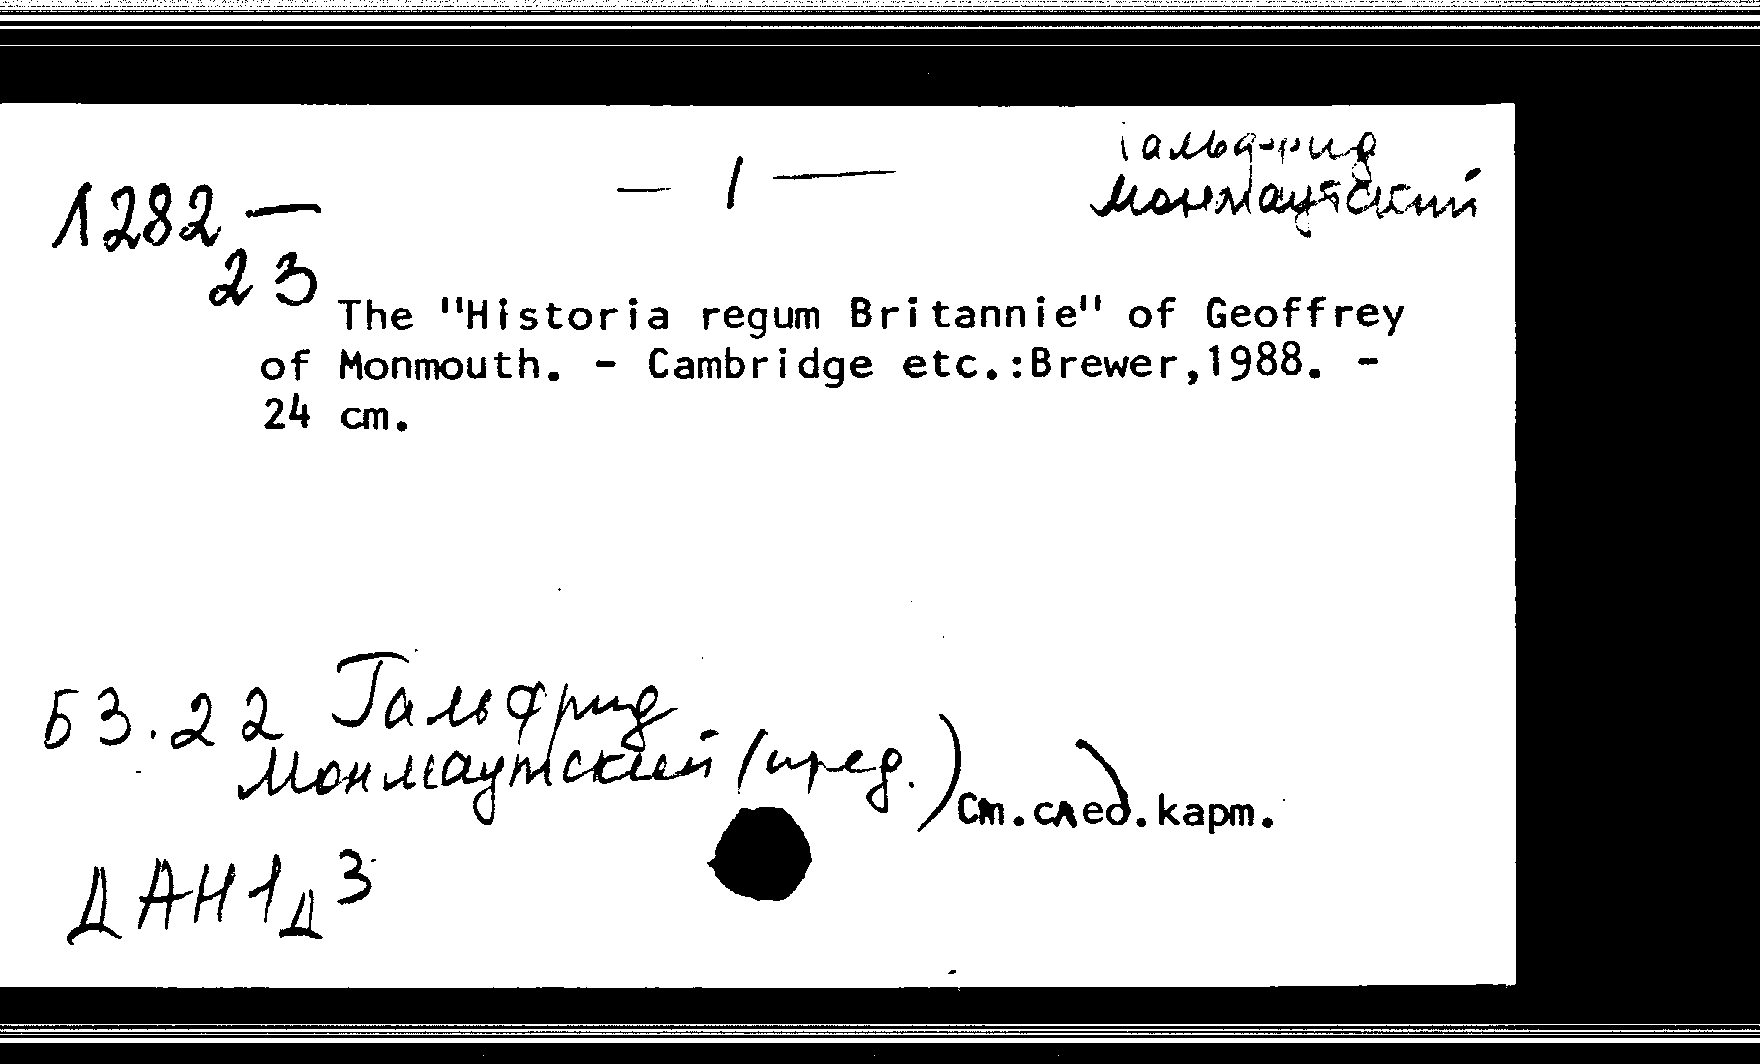 Гальфрид
1282 — — 1 — Монмаутский
23
The "Historia regum Britannie" of Geoffrey
of Monmouth. - Cambridge etc.:Brewer,1988. -
24 cm.
Б3.22 Гальфрид
Монмаутский (пред.)
См.след.карт.
ДАН1д3